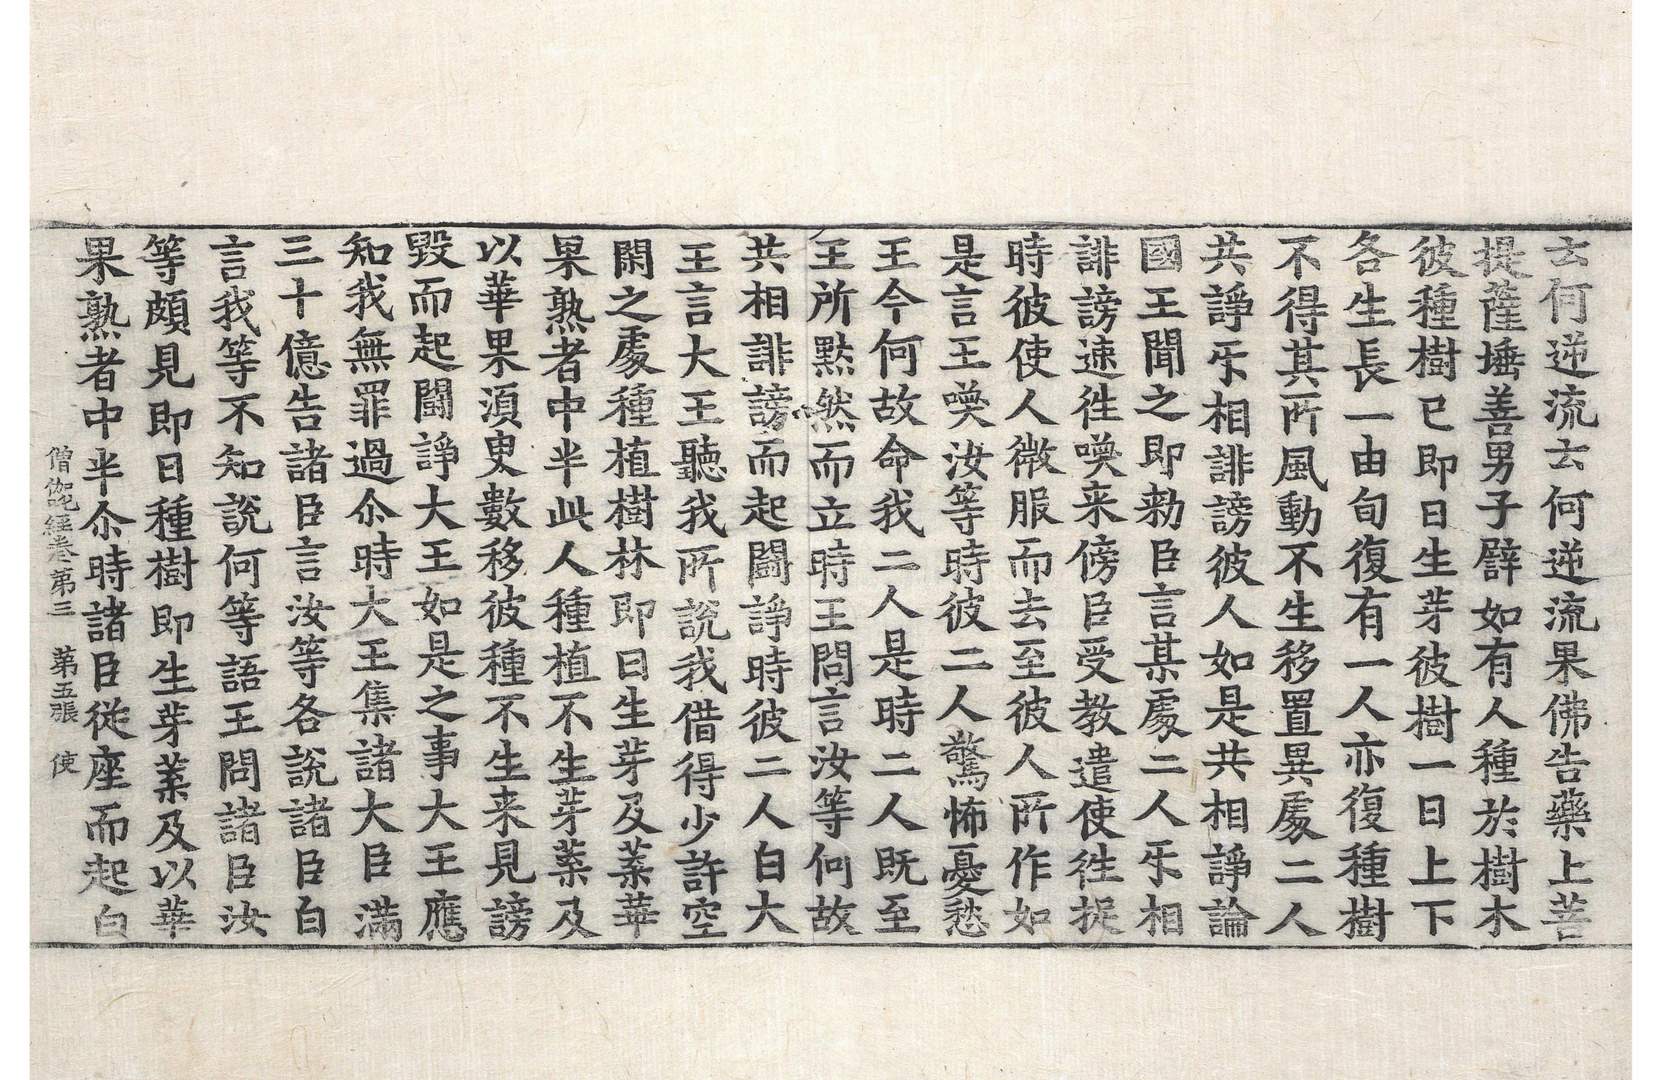 云何逆流云何逆流果佛告藥上菩
提薩埵善男子譬如有人種於樹木
彼種樹已即日生芽彼樹一日上下
各生長一由旬復有一人亦復種樹
不得其所風動不生移置異處二人
共諍㸦相誹謗彼人如是共相諍論
國王聞之即勑臣言某處二人㸦相
誹謗速徃喚来傍臣受教遣使徃捉
時彼使人微服而去至彼人所作如
是言王喚汝等時彼二人驚怖憂愁
王今何故命我二人是時二人既至
王所默然而立時王問言汝等何故
共相誹謗而起鬪諍時彼二人白大
王言大王聽我所說我借得少許空
閑之處種植樹林即日生芽及葉華
果熟者中半此人種植不生芽葉及
以華果湏㬰數移彼種不生来見謗
毀而起鬪諍大王如是之事大王應
知我無罪過尒時大王集諸大臣滿
三十億告諸臣言汝等各說諸臣白
言我等不知說何等語王問諸臣汝
等頗見即日種樹即生芽葉及以華
果熟者中半尒時諸臣從座而起白
僧伽吒經卷第三 第五張 使